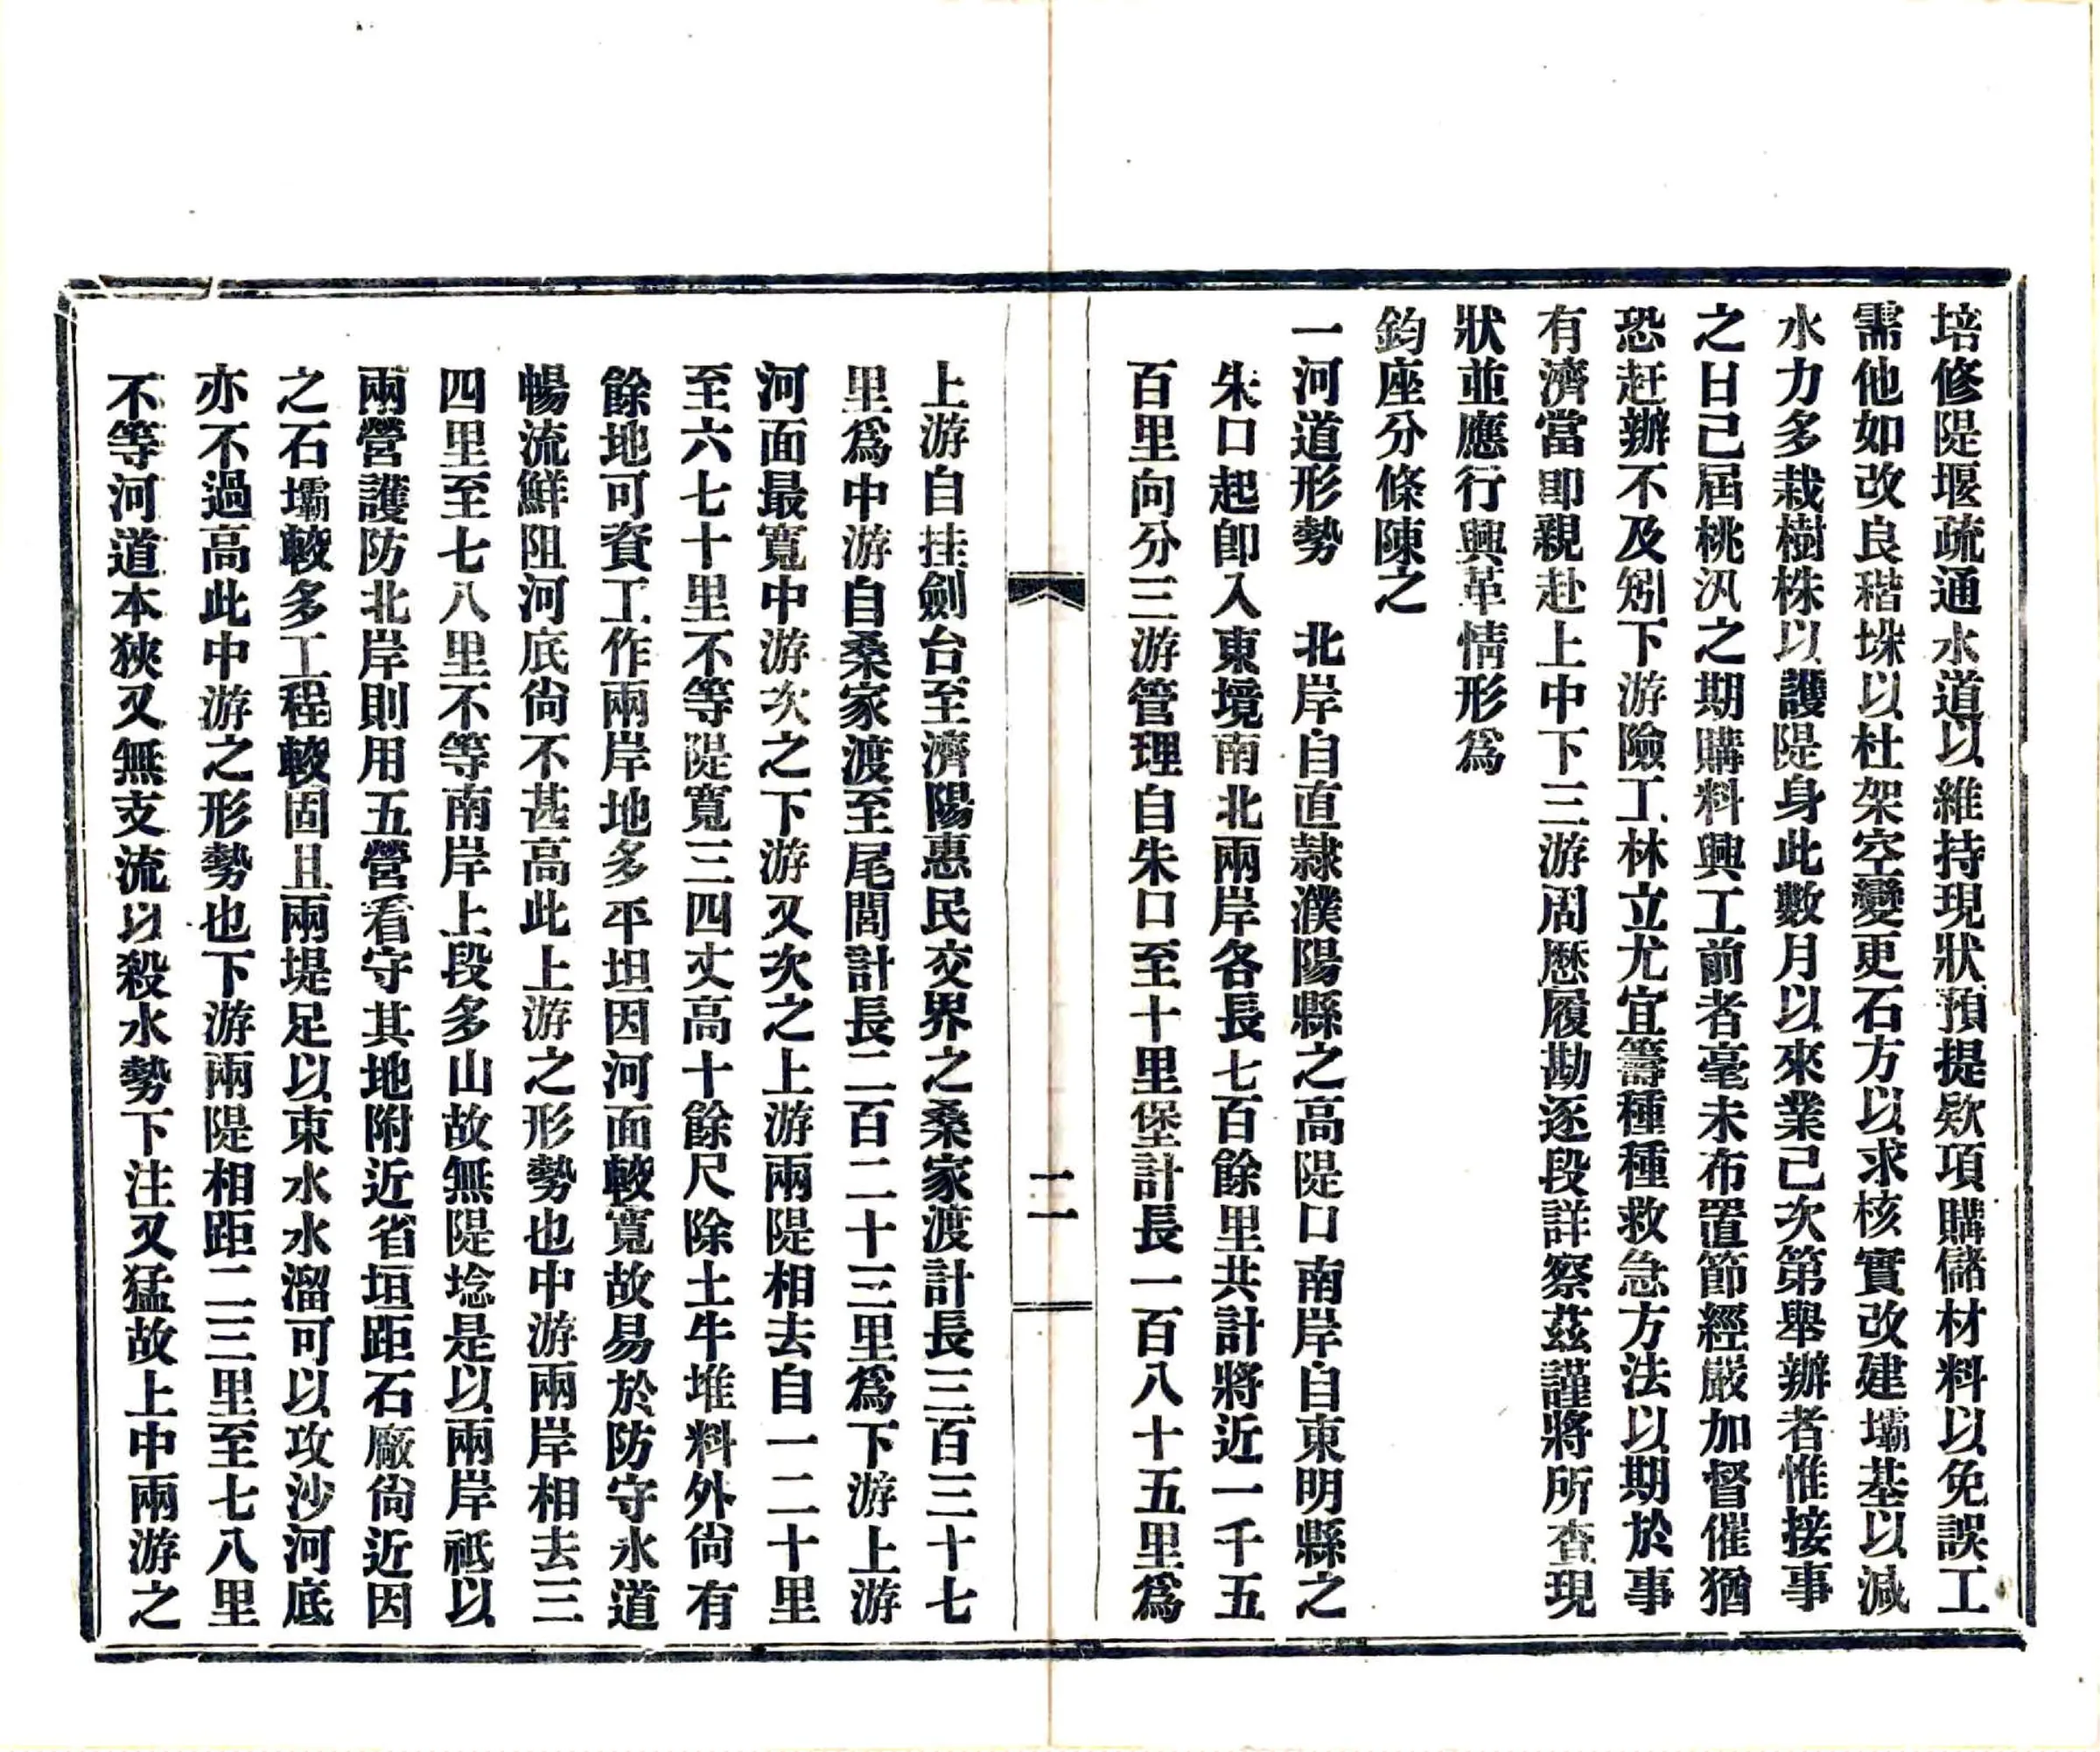 培修隄堰疏通水道以維持現狀預提欵項購儲材料以免誤工
需他如改良稭垜以杜架空變更石方以求核實改建壩基以減
水力多栽樹株以護隄身此數月以來業己次第舉辦者惟接事
之日己屆桃汛之期購料興工前者毫未布置節經嚴加督催猶
恐赶辦不及矧下游險工林立尤宜籌種種救急方法以期於事
有濟當即親赴上中下三游周歷履勘逐段詳察茲謹將所查現
狀並應行興革情形爲
鈞座分條陳之
一河道形勢　北岸自直隸濮陽縣之高隄口南岸自東明縣之
朱口起卽入東境南北兩岸各長七百餘里共計將近一千五
百里向分三游管理自朱口至十里堡計長一百八十五里爲
二
上游自挂劍台至濟陽惠民交界之桑家渡計長三百三十七
里爲中游自桑家渡至尾閭計長二百二十三里爲下游上游
河面最寬中游次之下游又次之上游兩隄相去自一二十里
至六七十里不等隄寬三四丈高十餘尺除土牛堆料外尙有
餘地可資工作兩岸地多平坦因河面較寬故易於防守水道
暢流鮮阻河底尙不甚高此上游之形勢也中游兩岸相去三
四里至七八里不等南岸上段多山故無隄埝是以兩岸祗以
兩營護防北岸則用五營看守其地附近省垣距石廠尙近因
之石壩較多工程較固且兩堤足以束水水溜可以攻沙河底
亦不過高此中游之形勢也下游兩隄相距二三里至七八里
不等河道本狹又無支流以殺水勢下注又猛故上中兩游之